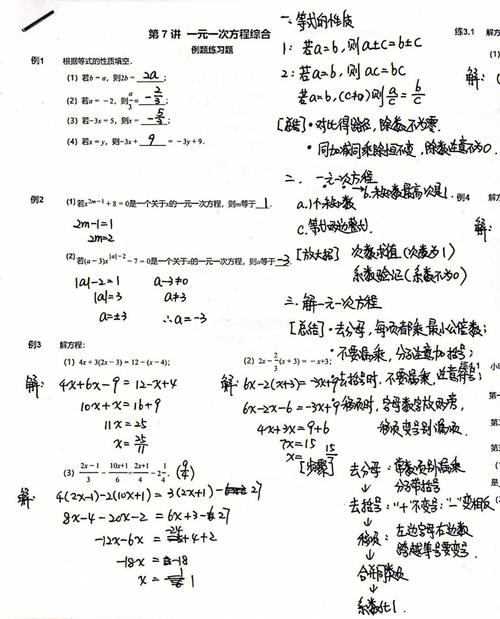 第 7 讲 一元一次方程综合
例题练习题
例1 根据等式的性质填空.
(1) 若b = a, 则2b = 2a ;
(2) 若a = −2, 则a/3 = −2/3 ;
(3) 若−3x = 5, 则x = −5/3 ;
(4) 若x = y, 则−3x + 9 = −3y + 9.
例2 (1) 若x^(2m−1) + 8 = 0是一个关于x的一元一次方程, 则m等于 1 .
2m−1=1
2m=2
(2) 若(a − 3)x^(|a|−2) − 7 = 0是一个关于x的一元一次方程, 则a等于 −3 .
|a|−2=1 a−3≠0
|a|=3 a≠3
a=±3 ∴a=−3
例3 解方程:
(1) 4x + 3(2x − 3) = 12 − (x − 4);
解: 4x+6x−9=12−x+4
10x+x=16+9
11x=25
x=25/11
(2) 2x − 2/3(x + 3) = −x + 3;
解: 6x−2(x+3)=−3x+9
6x−2x−6=−3x+9
4x+3x=9+6
7x=15
x=15/7
(3) (2x−1)/3 − (10x+1)/6 = (2x+1)/4 − 2 1/4. (9/4)
解: 4(2x−1)−2(10x+1)=3(2x+1)−27
8x−4−20x−2=6x+3−27
−12x−6x=−24+4+2
−18x=−18
x=1
一、等式的性质
1: 若a=b, 则a±c=b±c
2: 若a=b, 则ac=bc
若a=b, (c≠0)则a/c=b/c
[总结]·对比得路径, 除数不为零.
·同加减同乘除恒不变, 除数注意不为0.
二、一元一次方程
→b.未知数最高次是1.
a.1个未知数
c.等式两边整式.
[放大招] 次数求值 (次数为1)
系数验证 (系数不为0)
三、解一元一次方程
[总结]·去分母, 每项都乘最小公倍数;
·不要漏乘, 分子注意加括号;
去括号时, 不要漏乘, 注意符号;
移项时, 字母数字放两旁,
移项变号别漏项.
[步骤] 去分母: 常数项别漏乘
分子带括号
↓
去括号: "+"不变号; "−"变相反
↓
移项: 左边字母右边数
跨越等号要变号.
↓
合并同类项
↓
系数化1.
练3.1 解方
解:
例4
小
第一
第